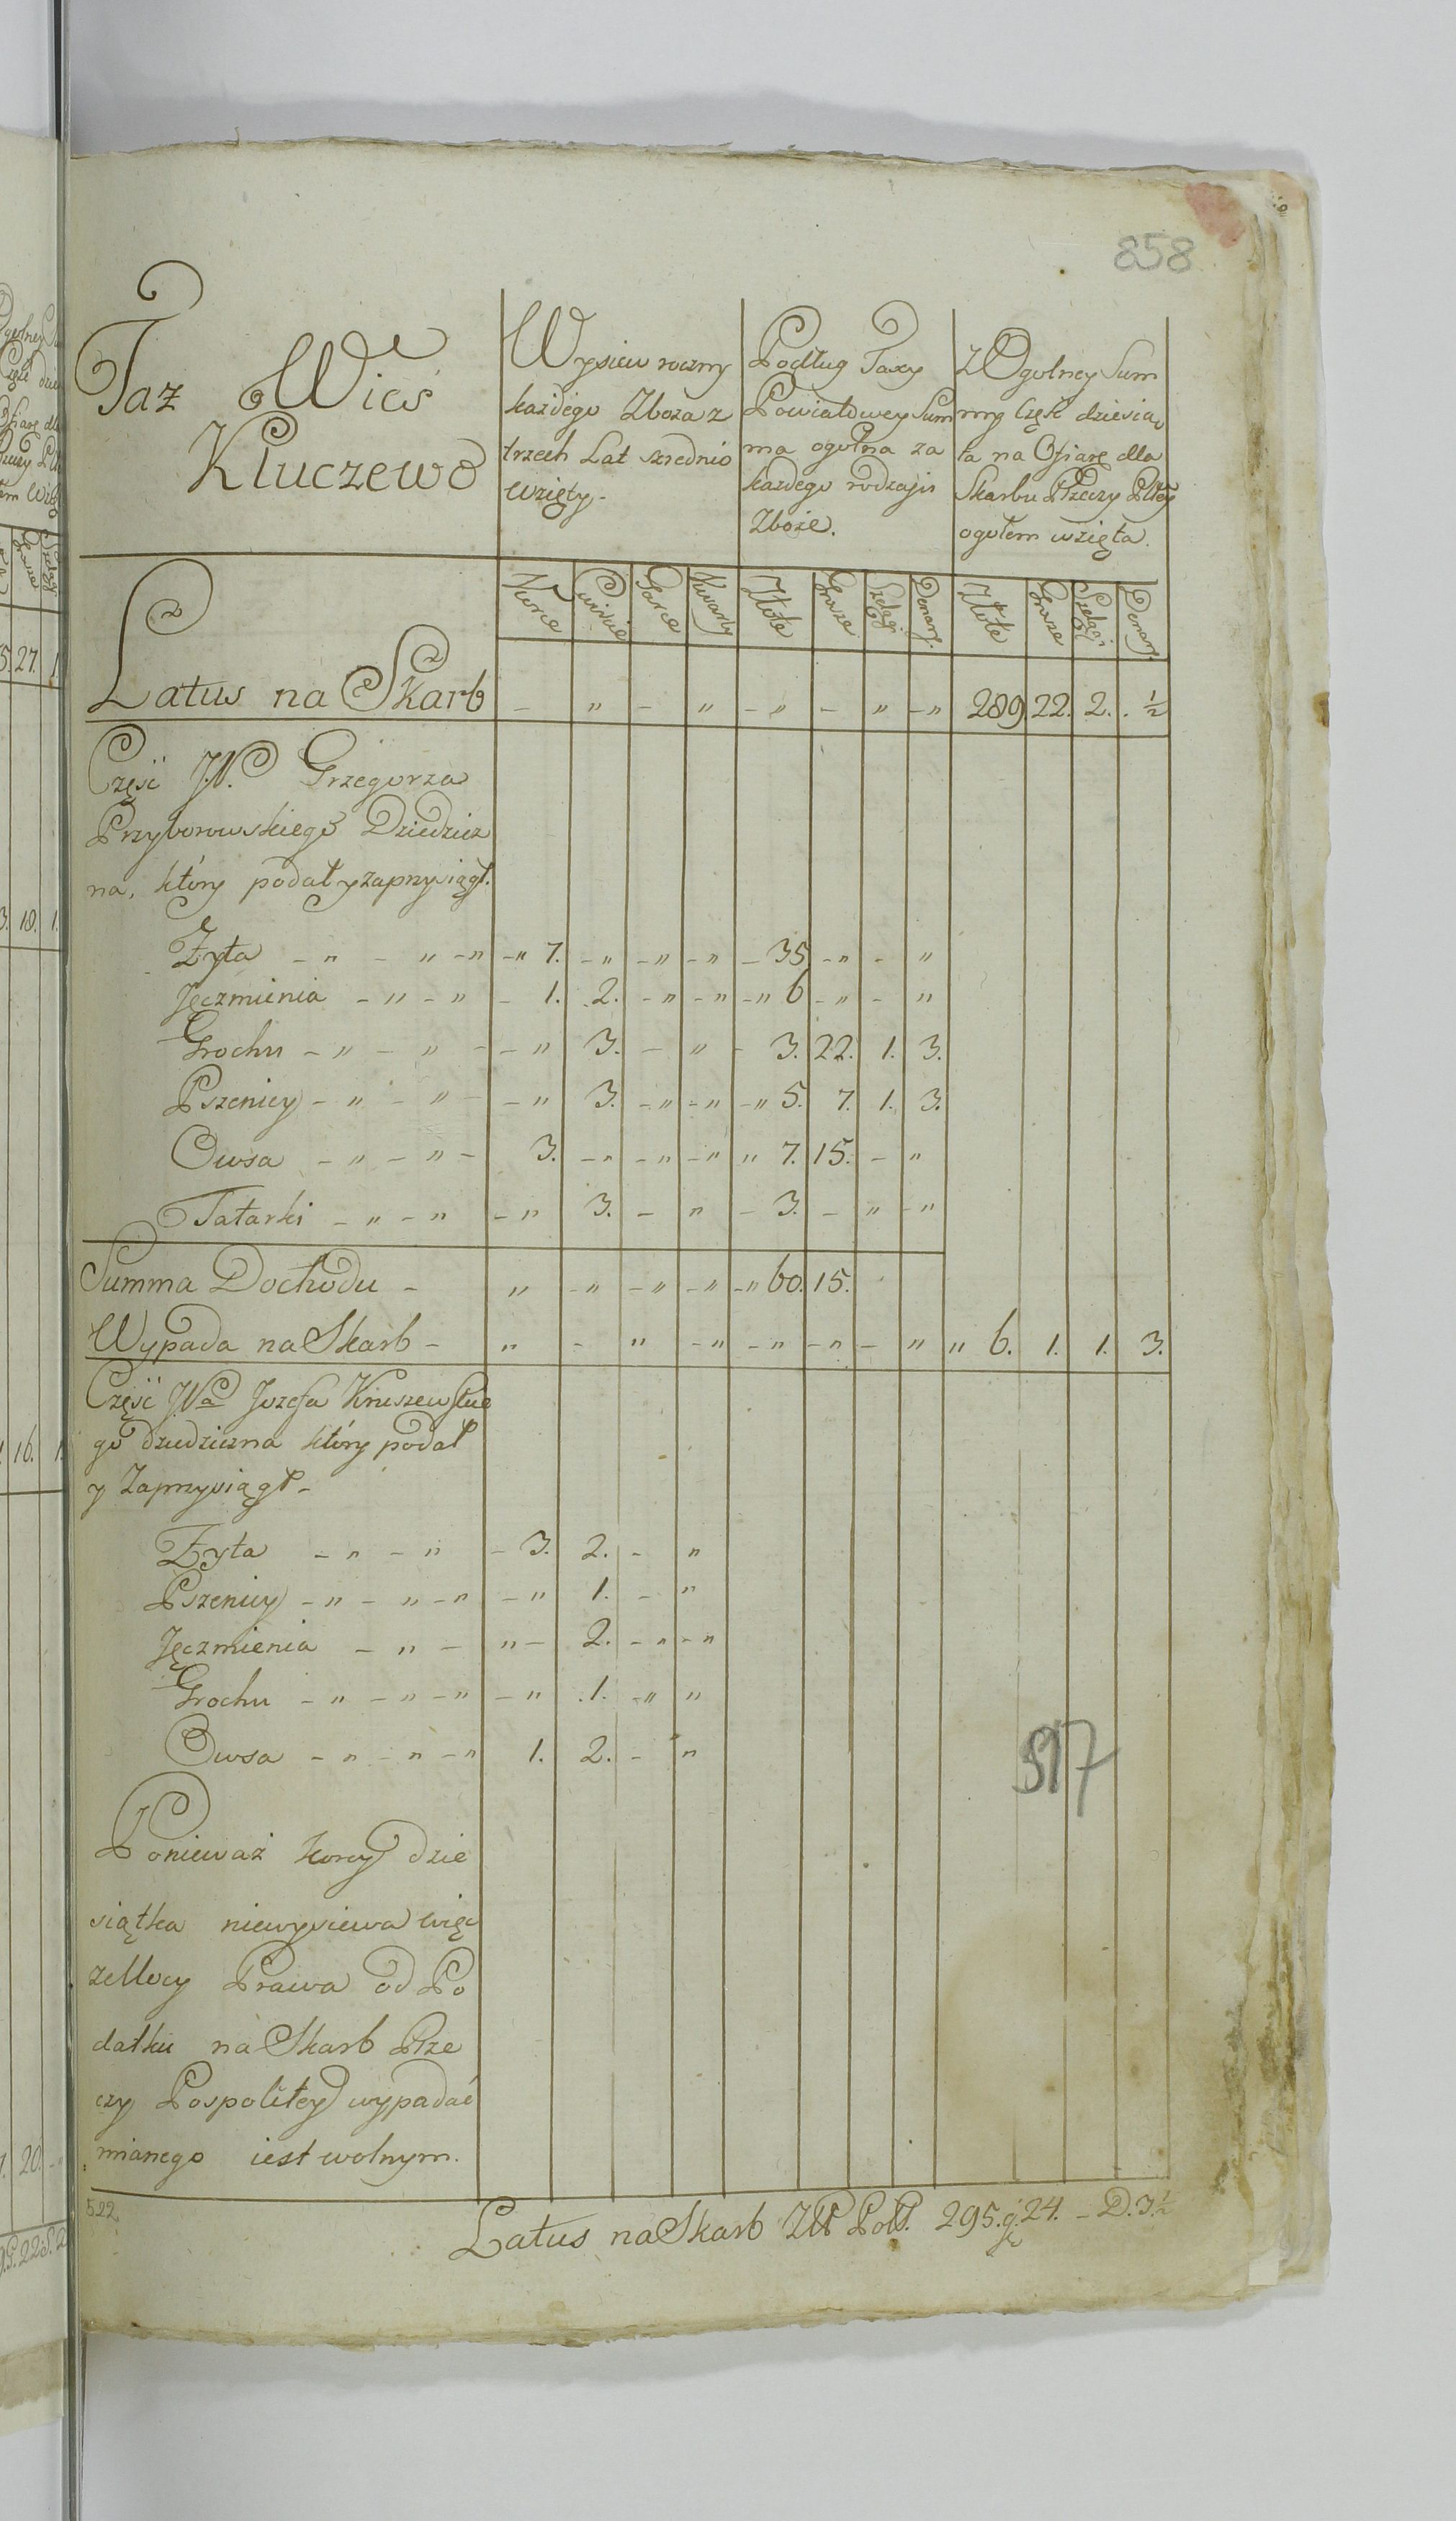 858
Taz Wieś
Kluczewo
Wysiew roczny
każdego Zboża z
trzech Lat srednio
wzięty -
Podług Taxy
Powiatowey Sum
ma ogolna za
każdego rodzaju
Zboże.
z Ogolney Sum
my Częsć dziesią
ta na Ofiarę dla
Skarbu Rzeczy Pltey
ogołem wzięta.
Korce Cwircie Garce Kwarty Złote Grosze Szelągi Denary. Złote Grosze Szelągi Denary.
Latus na Skarb - „ - „ - „ - „ - „ 289. 22. 2. ½
Część JP. Grzegorza
Przyborowskiego Dziedzicz
na, który podał y zaprzysiągł.
Żyta - „ - „ - „ - „ 7. - „ - „ - „ - 35 - „ - „
Jęczmienia - „ - „ - 1. 2. - „ - „ - „ 6 - „ - „
Grochu - „ - „ - - „ 3. - „ - 3. 22. 1. 3.
Pszenicy - „ - „ - - „ 3. - „ - „ - „ 5. 7. 1. 3.
Owsa - „ - „ - 3. - „ - „ - „ „ 7. 15. - „
Tatarki - „ - „ - „ 3. - „ - 3. - „ - „
Summa Dochodu - „ - „ - „ - „ - „ 60. 15.
Wypada na Skarb - „ - „ - „ - „ - „ - „ „ 6. 1. 1. 3.
Część JPa Jozefa Kruszewskie
go dziedziczna który podał
y Zaprzysiągł -
Żyta - „ - „ - 3. 2. - „
Pszenicy - „ - „ - „ - „ 1. - „
Jęczmienia - „ - „ - 2. - „ - „
Grochu - „ - „ - „ - „ 1. - „ „
Owsa - „ - „ - „ 1. 2. - „
517
Ponieważ korcy dzie
siątka niewysiewa więc
z Mocy Prawa od Po
datku na Skarb Rze
czy Pospolitey wypadać
mianego iest wolnym.
522.
Latus na Skarb Złł Poll. 295. g. 24. - D. 3. ½